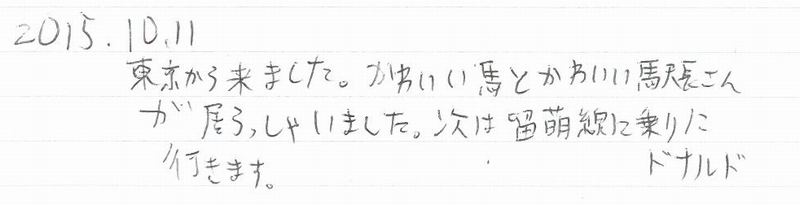 2015.10.11
東京から来ました。かわいい馬とかわいい駅長さん
が居らっしゃいました。次は留萌線に乗りに
行きます。 ドナルド